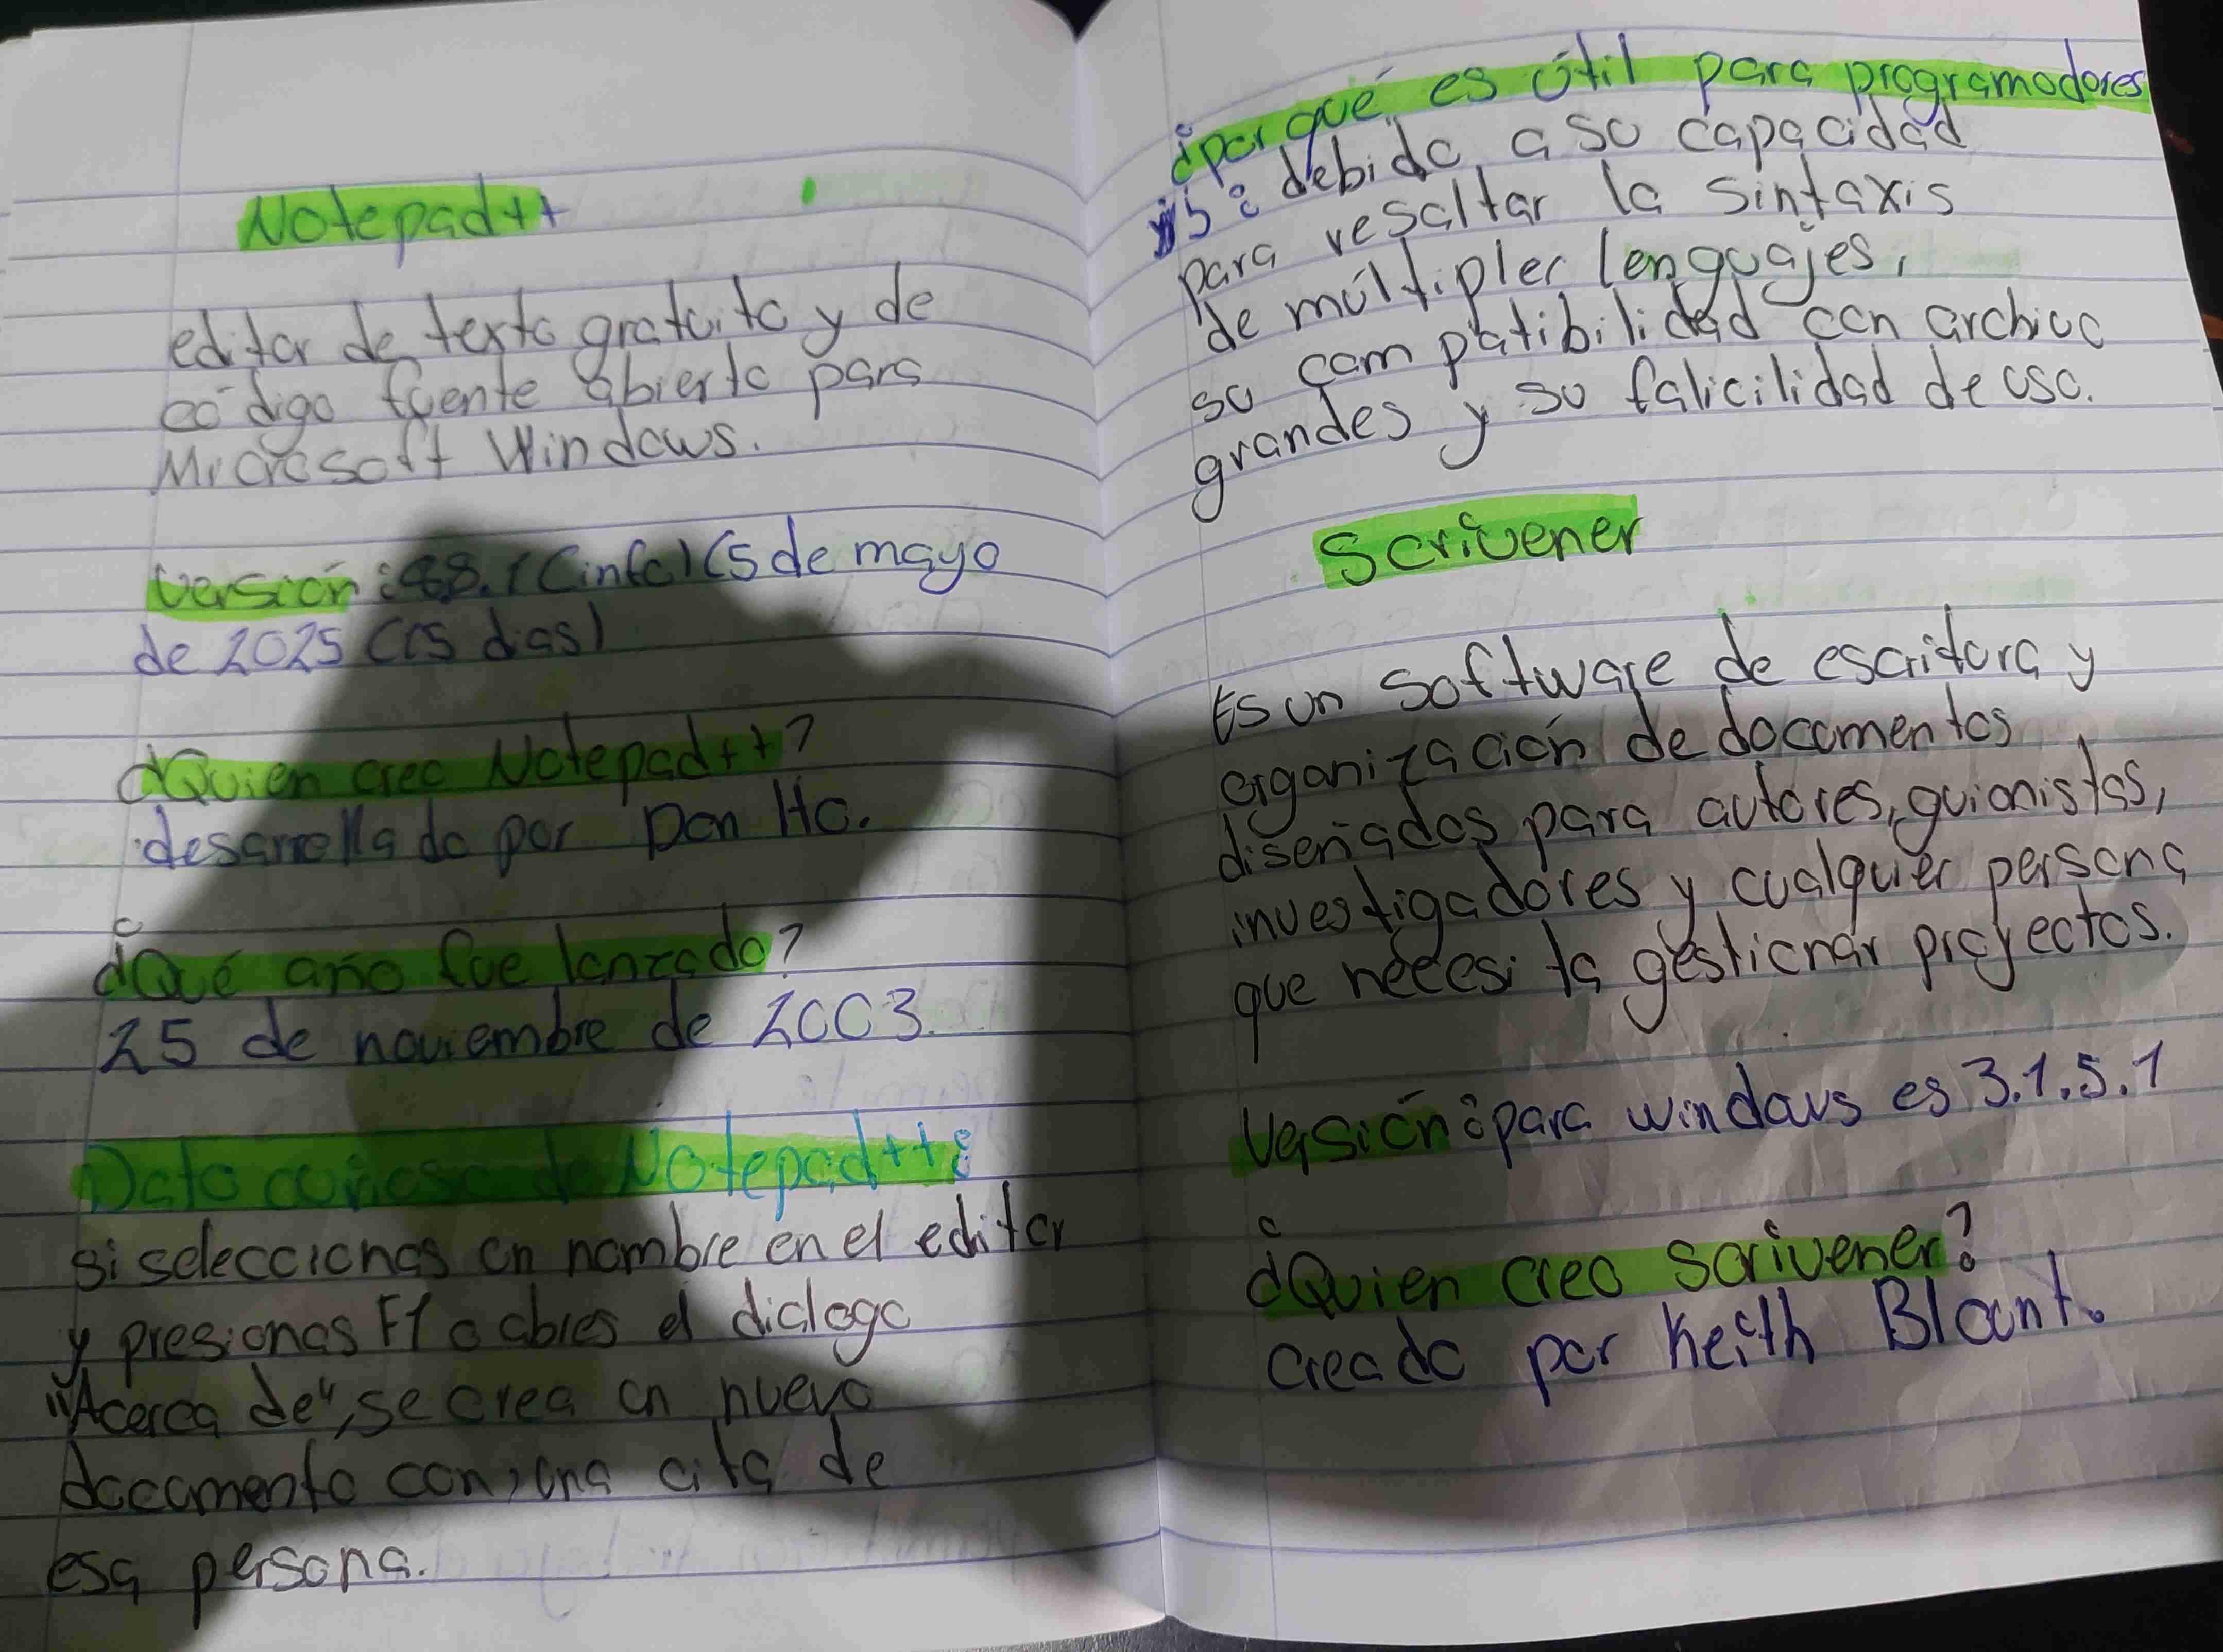 Notepad++
editor de texto gratuito y de
código fuente abierto para
Microsoft Windows.
Versión: 88.1 (info) (5 de mayo
de 2025 (15 dias)
¿Quien creo Notepad++?
desarrollado por Don Ho.
¿Qué año fue lanzado?
25 de noviembre de 2003.
Dato curioso de Notepad++:
si seleccionas un nombre en el editor
y presionas F1 o abres el dialogo
"Acerca de", se crea un nuevo
documento con una cita de
esa persona.
¿por qué es útil para programadores
: debido a su capacidad
para resaltar la sintaxis
de múltipler lenguajes,
su compatibilidad con archivo
grandes y su falicilidad de uso.
Scrivener
Es un software de escritura y
organización de documentos
diseñados para autores, guionistas,
investigadores y cualquier persona
que necesita gestionar proyectos.
Versión: para windows es 3.1.5.1
¿Quien creo Scrivener?
creado por Keith Blount.